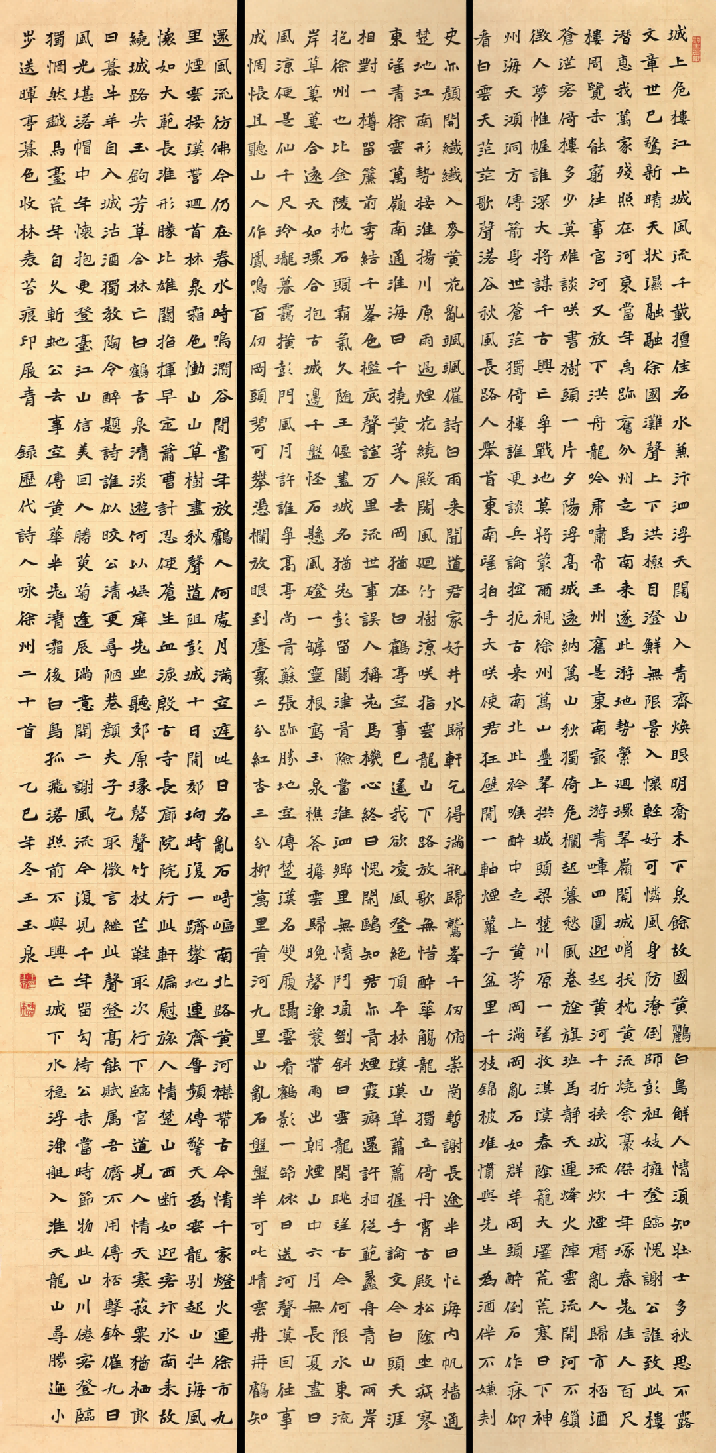 城上危樓江上城風流千載擅佳名水兼汴泗浮天闊山入青齊煥眼明喬木下泉餘故國黃鸝白鳥解人情須知壯士多秋思不露
文章世已驚新晴天狀濕融融徐國灘聲上下洪極目澄鮮無限景入懷輕好可憐風身防潦倒師彭祖妓擁登臨愧謝公誰致此樓
潛惠我萬家殘照在河東當年禹跡奮分州走馬南來遂此游地勢縈迴環翠嶺關城峭拔枕黃流燒余豪傑千年塚春老佳人百尺
樓周覽未能窮往事官河又放下洪舟龍吟虎嘯帝王州舊是東南最上游青嶂四圍迎起黃河千折挾城流炊煙曆亂人歸市杯酒
蒼茫客倚樓多少英雄談咲書樹頭一片夕陽浮高城遠納萬山秋獨倚危欄起暮愁風卷旌旗班馬靜天連烽火陣雲流關河不鎖
徵人夢惟幄誰深大將謀千古興亡爭戰地莫將叢爾視徐州萬山疊翠拱城頭梁楚川原一望收漠漠春陰籠大澤荒荒寒日下神
州海天澒洞方傳箭身世蒼茫獨倚樓誰更談兵論搤扼古來南北此衿喉醉中走上黃茅岡滿岡亂石如群羊岡頭醉倒石作床仰
看白雲天茫茫歌聲落谷秋風長路人舉首東南望拍手大咲使君狂壁開一軸煙蘿子盆里千枝錦被堆慣與先生為酒伴不嫌刺
史亦顏開纖纖入麥黃花亂颯颯催詩白雨來聞道君家好井水歸軒乞得滿瓶歸鷲峯千仞俯崇崗暫謝長途半日忙海內帆檣通
楚地江南形勢接淮揚川原雨過煙花繞殿閣風迴竹樹涼咲指雲龍山下路放歌無惜醉華觴龍山獨立倚丹霄古殿松陰坐寂寥
東望青徐雲萬嶺南通淮海日千橈黃茅人去岡猶在白鶴亭空事已遙我欲凌風登絕頂平林漠漠草蕭蕭握手論交今白頭天涯
相對一樽留簾前秀結千峯色檻底聲諠萬里流世事誤人稱老馬機心終日愧閑鷗知君亦有煙霞癖還許相從範蠡舟青山兩岸
抱徐州也比金陵枕石頭霸氣久隨王偃盡城名猶先彭留關津有險當淮泗鄉里無情鬥項劉斜日雲龍閑眺望古今何限水東流
岸草萋萋合遠天如環合抱古城邊千盤怪石懸風磴一罅靈根寫玉泉樵荅擔雲歸晚磬漁蓑帶雨出朝煙山中六月無長夏盡日
風涼便是仙千尺玲瓏暮靄橫彭門風月許誰爭高亭尚有蘇張跡勝地空傳楚漢名雙履躡雲看鶴影一笻依日送河聲莫回往事
成惆悵且聽山人作鳳鳴百仞岡頭碧可攀憑欄放眼到塵寰二分紅杏三分柳萬里黃河九里山亂石盤盤羊可叱晴雲冉冉鶴知
還風流彷彿今仍在春水時鳴澗谷間當年放鶴人何處月滿空庭此日名亂石崎嶇南北路黃河襟帶古今情千家燈火連徐市九
里煙雲接漢營迴首林泉霜色慟山山草樹盡秋聲道阻彭城十日間郊坰時復一躋攀地連齊魯頻傳警天為雲龍別起山壯海風
懷如大範長淮形勝比雄關指揮早定蕭曹計忍使蒼生血淚殷古寺長廊院院行此軒偏慰旅人情楚山西斷如迎客汴水南來故
繞城路失玉鉤芳草合林亡白鶴古泉清淡遊何以娛庠老坐聽郊原琭磬聲竹杖芒鞋取次行下臨官道見人情天寒菽粟猶棲畝
日暮牛羊自入城沽酒獨教陶令醉題詩誰似皎公清更尋陋巷顏夫子乞取微言繼此聲登高能賦屬吾儕不用傳杯擊鉢催九日
風光堪落帽中年懷抱更登臺江山信美回人勝萸菊逢辰滿意開二謝風流今復見千年留句待公來當時節物此山川倦客登臨
獨惘然戲馬臺荒年自久斬蛇公去事空傳黃華半老清霜後白鳥孤飛落照前不與興亡城下水穩浮漁艇入淮天龍山尋勝迤小
步送暉亭暮色收林表苔痕印屐青 錄歷代詩人咏徐州二十首 乙巳年冬王玉泉